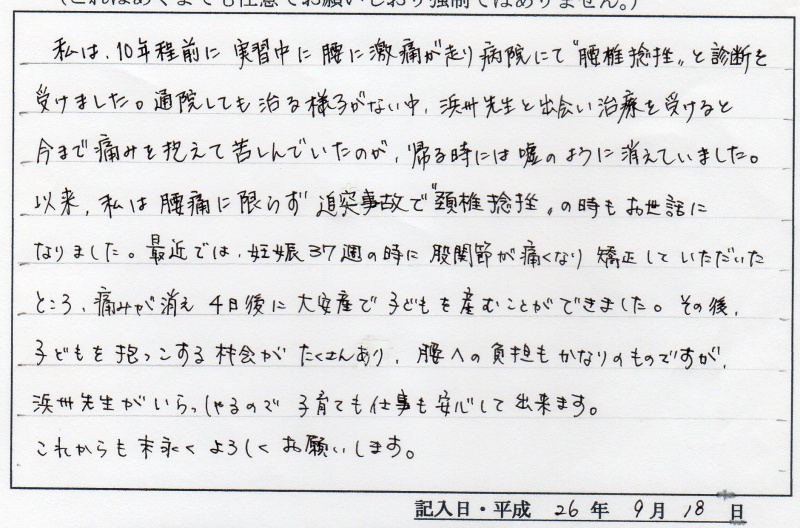 (これはあくまでも任意でお願いしており強制ではありません。)
私は、10年程前に実習中に腰に激痛が走り病院にて〝腰椎捻挫〟と診断を
受けました。通院しても治る様子がない中、浜州先生と出会い治療を受けると
今まで痛みを抱えて苦しんでいたのが、帰る時には嘘のように消えていました。
以来、私は腰痛に限らず追突事故で〝頚椎捻挫〟の時もお世話に
なりました。最近では、妊娠37週の時に股関節が痛くなり矯正していただいた
ところ、痛みが消え4日後に大安産で子どもを産むことができました。その後、
子どもを抱っこする機会がたくさんあり、腰への負担もかなりのものですが、
浜州先生がいらっしゃるので子育ても仕事も安心して出来ます。
これからも末永くよろしくお願いします。
記入日・平成 26 年 9 月 18 日